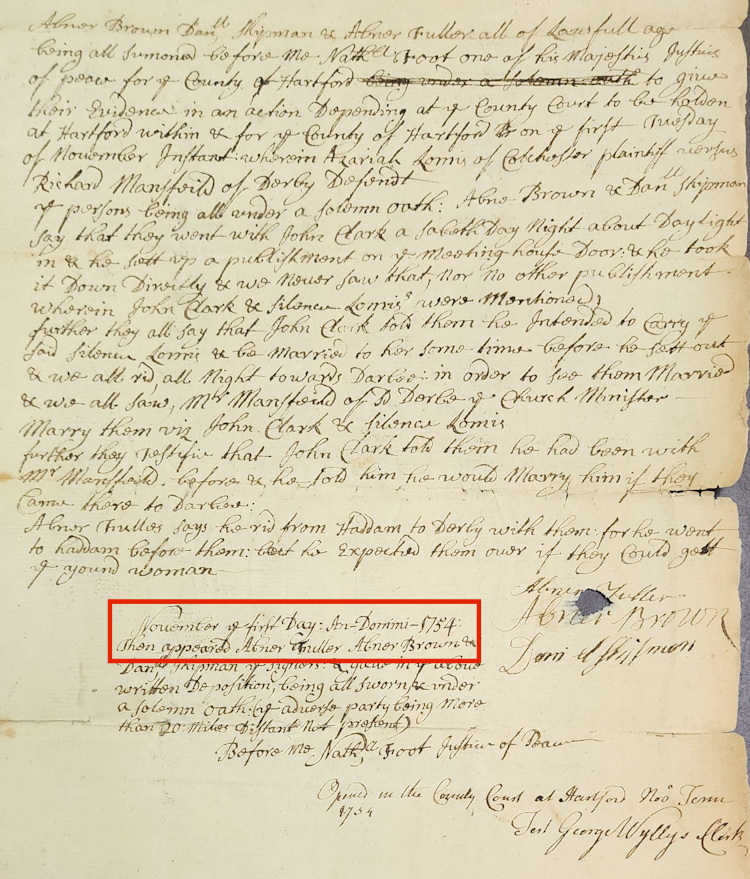 Abner Brown Danll Skipman & Abner Fuller all of Lawfull age
being all sumoned before me Nathll Foot one of his Majesties Justices
of peace for ye County of Hartford being under a solemn oath to give
their Evidence in an action Depending at ye County Court to be holden
at Hartford within & for ye County of Hartford on ye first Tuesday
of November Instant: wherein Azariah Lomis of Colchester plaintiff aversus
Richard Mansfeild of Derby Defendt
ye persons being all under a solemn oath: Abne Brown & Danll Skipman
say that they went with John Clark a Sabeth Day Night about Day light
in & he sett up a publishment on ye Meeting house Door: & he took
it Down Directly & we Never saw that, Nor No other publishment
wherein John Clark & Silence Lomis were Mentioned;
further they all say that John Clark told them he Intended to Carry ye
said Silence Lomis & be Married to her some time before he sett out
& we all rid, all Night towards Darbee: in order to see them Married
& we all saw, Mr Mansfeild of sd Derbe ye Church Minister
Marry them viz John Clark & Silence Lomis
further they Testifie that John Clark told them he had been with
Mr Mansfeild. before & he told him he would Marry him if they
Came there to Darbee:
Abner Fulles says he rid from Haddam to Derby with them: for he went
to haddam before them: but he Expected them over if they Could gett
ye yound woman
Abner Fuller
Abner Brown
Daniel Skipman
November ye first Day: An-Domini-1754:
then appeared Abner Fuller Abner Brown &
Danll Skipman ye signers: & gave in ye above
written Deposition, being all sworn & under
a solemn oath: (ye adverse party being More
than 20: Miles Distant Not present)
Before me Nathll Foot Justice of Peace
Opened in the County Court at Hartford Nov Term
1754
Test George Wyllys Clerk